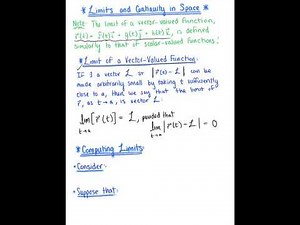 * Limits and Continuity in Space *
Note: The limit of a vector-valued function,
r(t) = f(t)i + g(t)j + h(t)k, is defined
similarly to that of scalar-valued functions:
* Limit of a Vector-Valued Function:
If ∃ a vector L or |r(t) - L| can be
made arbitrarily small by taking t sufficiently
close to a, then we say that the limit of
r, as t→a, is vector L:
lim [r(t)] = L, provided that
t→a
lim |r(t) - L| = 0
t→a
* Computing Limits:
• Consider:
• Suppose that: